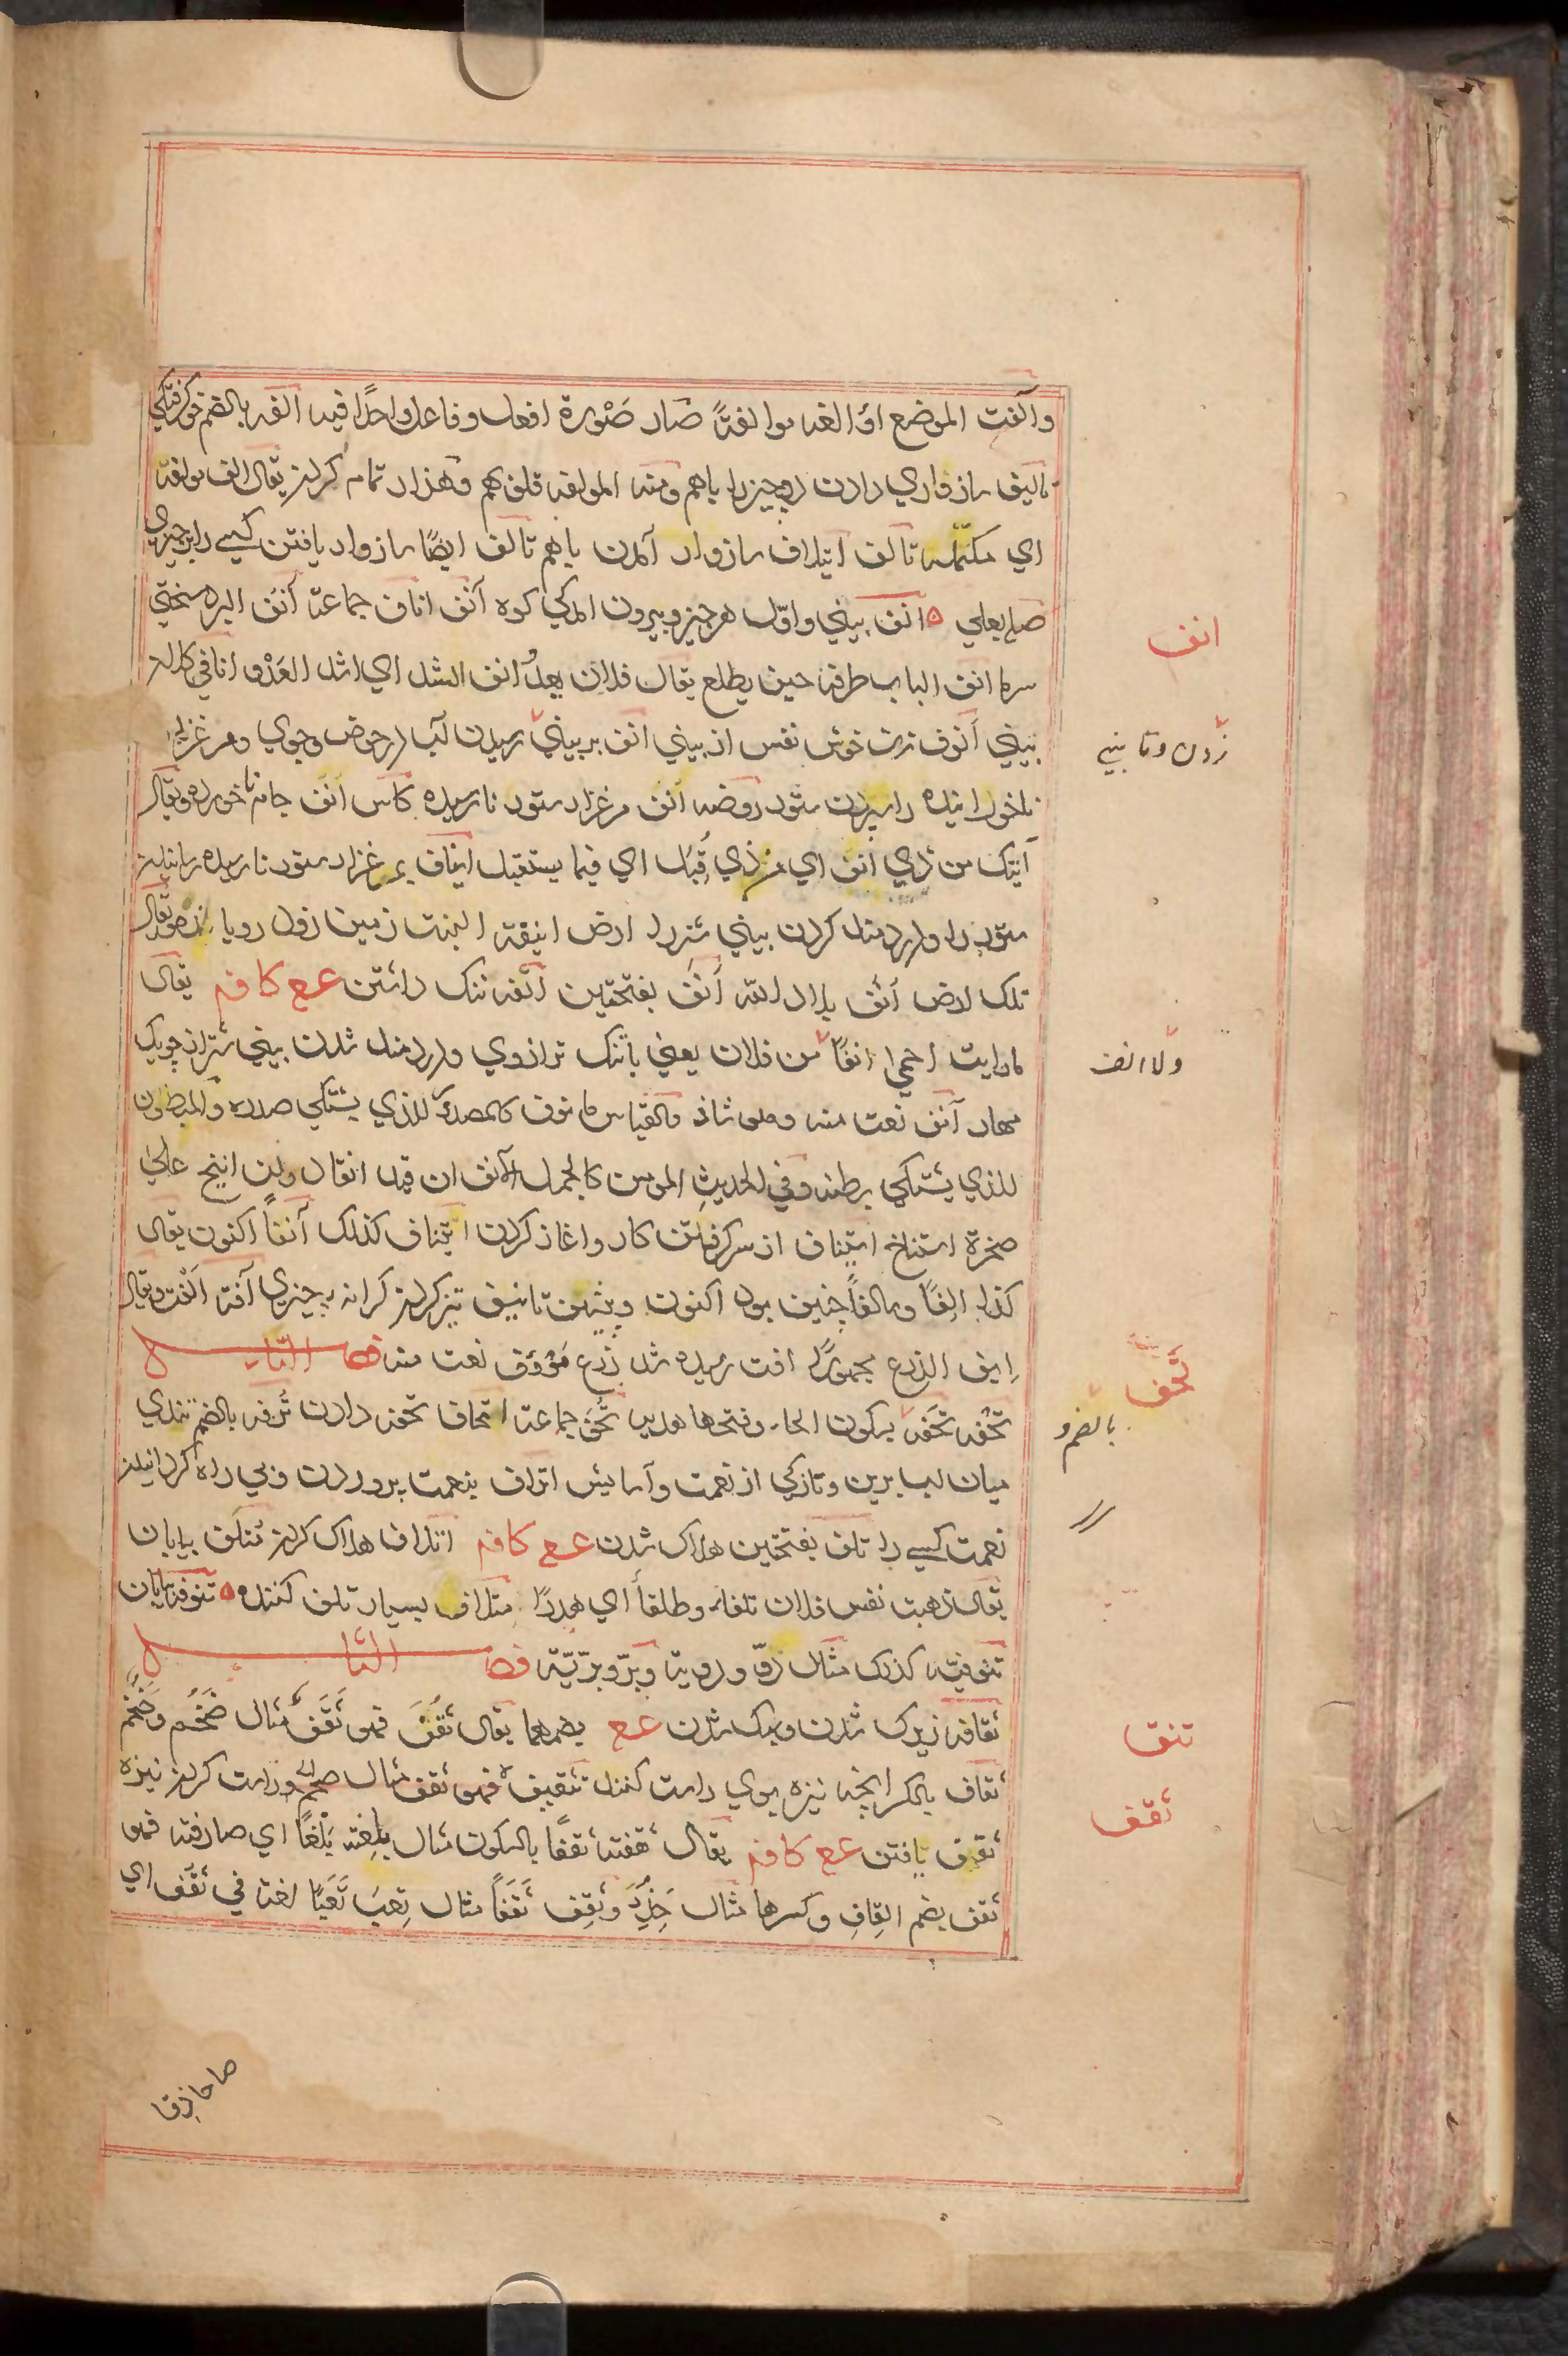 وآلفتِ الموضع اؤالفه موالفةً صار صُورة افعل وفاعل واحدًا فيه الفه بالضم خوكرفتكي
تاليف سازواري دادن دوچيز را باهم ومنه المولفه قلوبهم وهزار تمام كردن يقال الف مولفة
اي مكمّلة تالف ايتلاف سازوار آمدن باهم تالف ايضًا سازوار يافتن كسي را بر چيزي
صلح بعلي انف بيني واوّل هرچيز وبيرون امدكي كوه آنف اناف جماعة أنف البرد سختي
سرما انف الباب طرفه حين يطلع يقال فلان يعدُ انف الشد اي اشد العَدْو انافي كلان
بيني أنوف زن خوش نفس از بيني انف بر بيني رسيدن آب در حوض وجوي ومرغزار
ناخورانيده را ستور روضه أنف مرغزار ستور نارسيده كاس أنف جام ناخورده ويقال
آتيك من ذي انف اي من ذي قُبُل اي فيما يستقبل ايناف بمرغزار ستور نارسيده رسانيدن
ستور را ودردمند كردن بيني شتر را ارض انيفة النبت زمين زود روياننده ويقال
تلك ارض آنف بلاد اللّه أنَف بفتحتين آنفه ننك داشتن ع ع كافه يقال
ما رايت احمي انفًا من فلان يعني باننك تر ازوي ودردمند شدن بيني شتر از چوبك
مهار آنف نعت منه وهو شاذ والقياس مانوف كالمصدور للذي يشتكي صدره والمبطون
للذي يشتكي بطنه وفي الحديث المومن كالجمل الانف ان قيد انقاد وان انيخ علي
صخرة استناخ استيناف از سر كرفتن كار واغاز كردن ايتناف كذلك آنفًا اكنون يقال
كذا انفًا وسالفاً چنين بود اكنون وپيشين تانيف تيز كردن كرانه چيزي آفة آفت ويقال
ايف الزرع مجهولًا افت رسيده شد زرع مَؤوف نعت منه فصل التاء
تحْفه تحَفه بسكون الحاء وفتحها هديه تُحَف جماعة اتحاف تحفه دادن تُرفه بالضم تندي
ميان لب برين وتازكي از نعمت وآسايش اتراف بنعمت پروردن وبي راه كردانيدن
نعمت كسي را تلف بفتحتين هلاك شدن ع ع كافه اتلاف هلاك كردن مَتلَف بيابان
يقال ذهبت نفس فلان تلفا وطلفاً اي هدرًا متلاف بسيار تلف كننده تنوفه بيابان
تنوفيّة كذلك مثال دوّ ودوية وبرّ وبرّيّة فصل الثا
ثقافه زيرك شدن وسبك شدن ع ع بضمهما يقال ثقُف فهو ثَقْف مثال ضَخُم وضَخْم
ثقاف بالكسر انچه نيزه بوي راست كنند تثقيف راست كردن نيزه
ثقف يافتن ع ع كافه يقال ثقفته ثقفًا بالسكون مثال بلعته بَلْعًا اي صادفته فهو
ثقف بضم القاف وكسرها مثال حَذُر وثقِف ثَقَفًا مثال تعِب تَعَبًا لغة في ثقُف اي
انف
زدن وتا بيني
ولا انف
تحف
بالضم و
تنف
ثقف
صار حاذقا